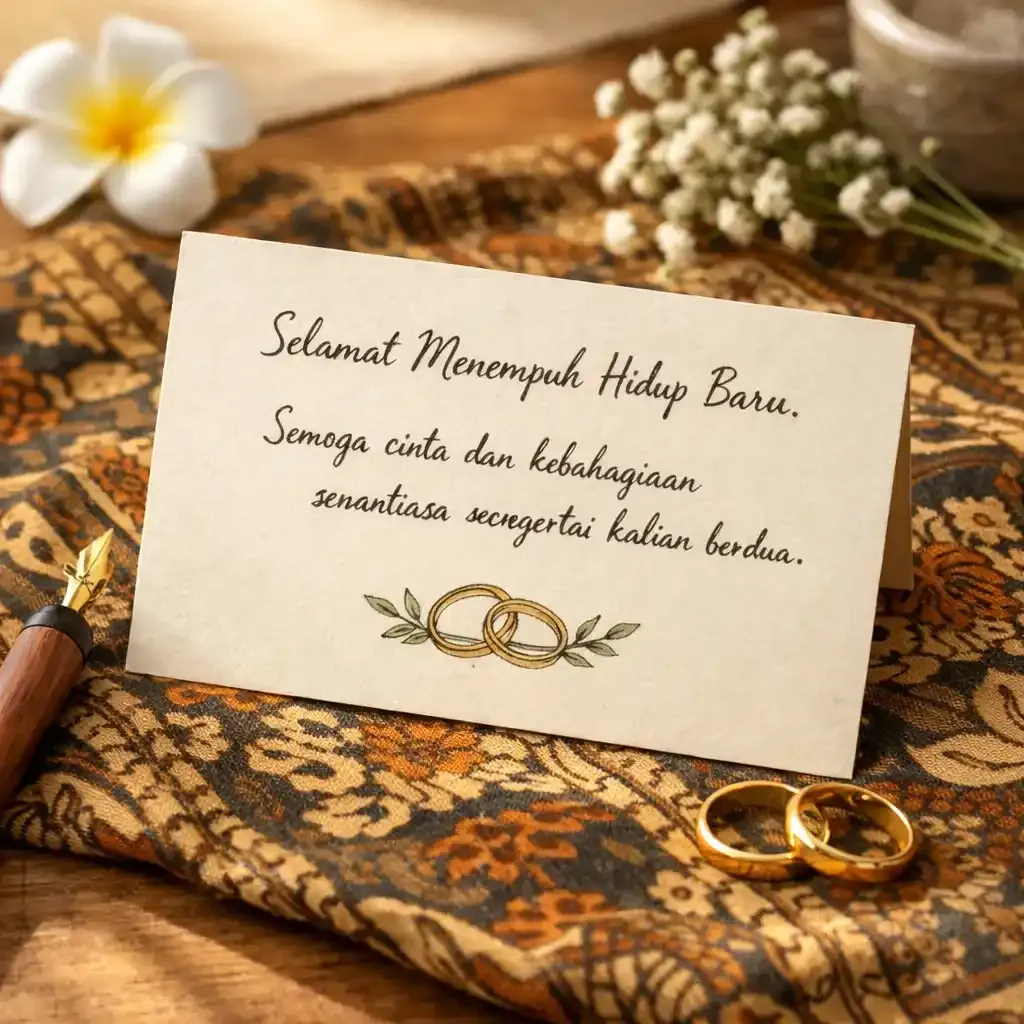 Selamat Menempuh Hidup Baru.
Semoga cinta dan kebahagiaan
senantiasa secregertai kalian berdua.